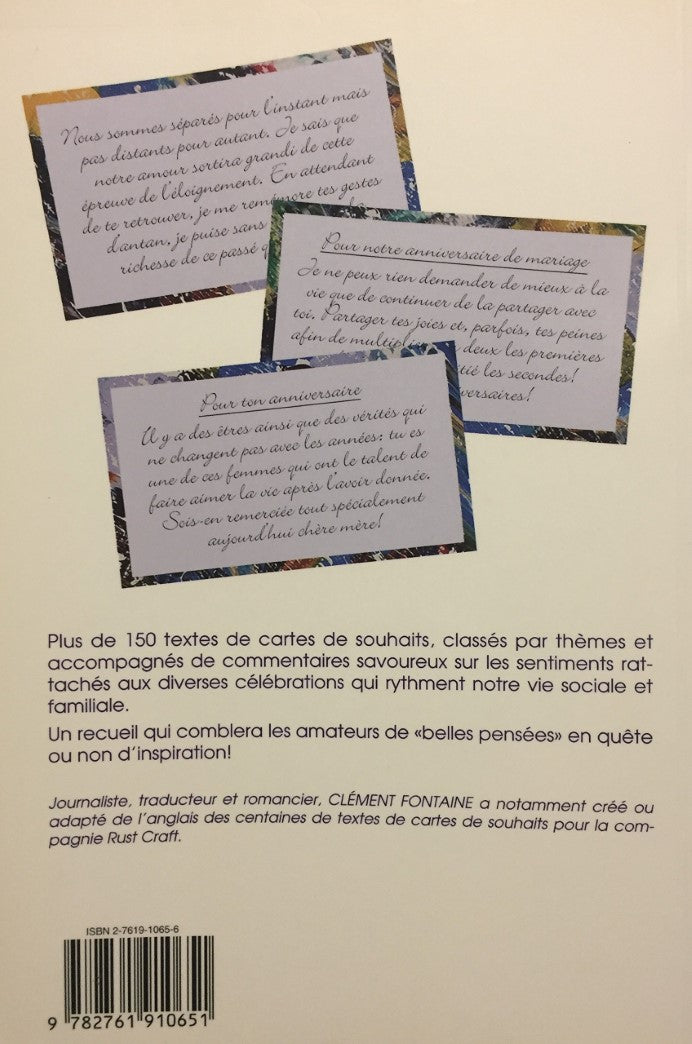 Nous sommes séparés pour l'instant mais
pas distants pour autant. Je sais que
notre amour sortira grandi de cette
épreuve de l'éloignement. En attendant
de te retrouver, je me remémore tes gestes
d'antan, je puise sans
richesse de ce passé
Pour notre anniversaire de mariage
Je ne peux rien demander de mieux à la
vie que de continuer de la partager avec
toi. Partager tes joies et, parfois, tes peines
afin de deux les premières
les secondes!
Pour ton anniversaire
Il y a des êtres ainsi que des vérités qui
ne changent pas avec les années; tu es
une de ces femmes qui ont le talent de
faire aimer la vie après l'avoir donnée.
Sois-en remerciée tout spécialement
aujourd'hui chère mère!
Plus de 150 textes de cartes de souhaits, classés par thèmes et
accompagnés de commentaires savoureux sur les sentiments rat-
tachés aux diverses célébrations qui rythment notre vie sociale et
familiale.
Un recueil qui comblera les amateurs de «belles pensées» en quête
ou non d'inspiration!
Journaliste, traducteur et romancier, CLÉMENT FONTAINE a notamment créé ou
adapté de l'anglais des centaines de textes de cartes de souhaits pour la com-
pagnie Rust Craft.
ISBN 2-7619-1065-6
9 782761 910651